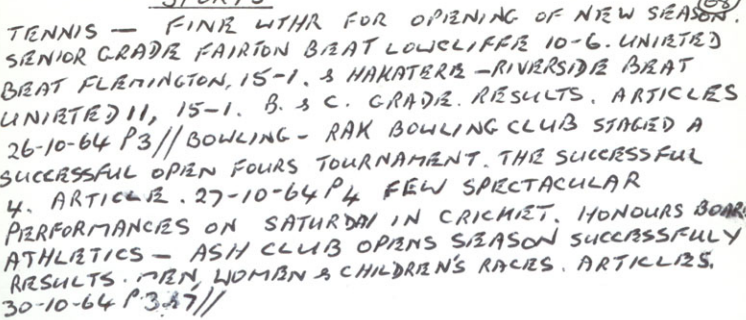 SPORTS
(08)
TENNIS — FINE WTHR FOR OPENING OF NEW SEASON.
SENIOR GRADE FAIRTON BEAT LOWCLIFFE 10-6. UNIETED
BEAT FLEMINGTON, 15-1. & HAKATERE -RIVERSIDE BEAT
UNIETED 11, 15-1. B. & C. GRADE. RESULTS. ARTICLES
26-10-64 P3 // BOWLING - RAK BOWLING CLUB STAGED A
SUCCESSFUL OPEN FOURS TOURNAMENT. THE SUCCESSFUL
4. ARTICLE. 27-10-64 P4 FEW SPECTACULAR
PERFORMANCES ON SATURDAY IN CRICKET. HONOURS BOARD
ATHLETICS — ASH CLUB OPENS SEASON SUCCESSFULY
RESULTS. MEN, WOMEN & CHILDREN'S RACES. ARTICLES.
30-10-64 P.3&7//